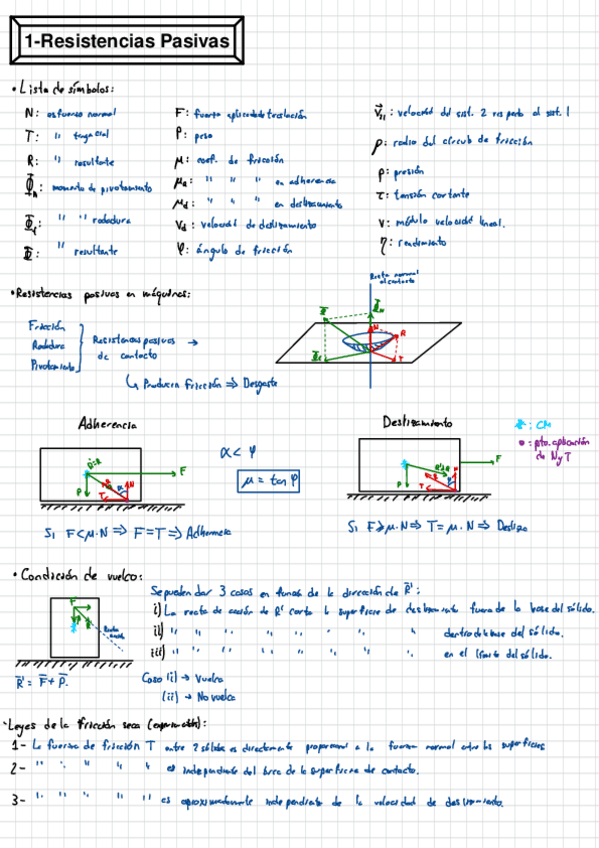 1-Resistencias Pasivas
• Lista de símbolos:
N: esfuerzo normal
T: " tangencial
R: " resultante
Φn: momento de pivotamiento
Φf: " " rodadura
Φ: " resultante
F: fuerza aplicada de traslación
P: peso
μ: coef. de fricción
μa: " " " en adherencia
μd: " " " en deslizamiento
Vd: velocidad de deslizamiento
φ: ángulo de fricción
V21: velocidad del sist. 2 respecto al sist. 1
ρ: radio del círculo de fricción
p: presión
τ: tensión cortante
v: módulo velocidad lineal.
η: rendimiento
• Resistencias pasivas en máquinas:
Fricción
Rodadura
Pivotamiento
Resistencias pasivas →
de contacto
↳ Producen fricción ⇒ Desgaste
Recta normal
al contacto
N
R
T
Adherencia
F
P
T
N
α < φ
μ = tan φ
Si F<μ·N ⇒ F=T ⇒ Adherencia
Deslizamiento
: CM
: pto. aplicación
de N y T
F
P
T
Si F≥μ·N ⇒ T=μ·N ⇒ Desliza
• Condición de vuelco:
F
P
R' = F + P.
Se pueden dar 3 casos en función de la dirección de R':
i) La recta de acción de R' corta la superficie de deslizamiento fuera de la base del sólido.
ii) " " " " " " " dentro de la base del sólido.
iii) " " " " " " " en el límite del sólido.
Caso (i) → Vuelca
(ii) → No vuelca
• Leyes de la fricción seca (experimentales):
1- La fuerza de fricción T entre 2 sólidos es directamente proporcional a la fuerza normal entre las superficies
2- " " " " " es independiente del área de la superficie de contacto.
3- " " " " " es aproximadamente independiente de la velocidad de deslizamiento.